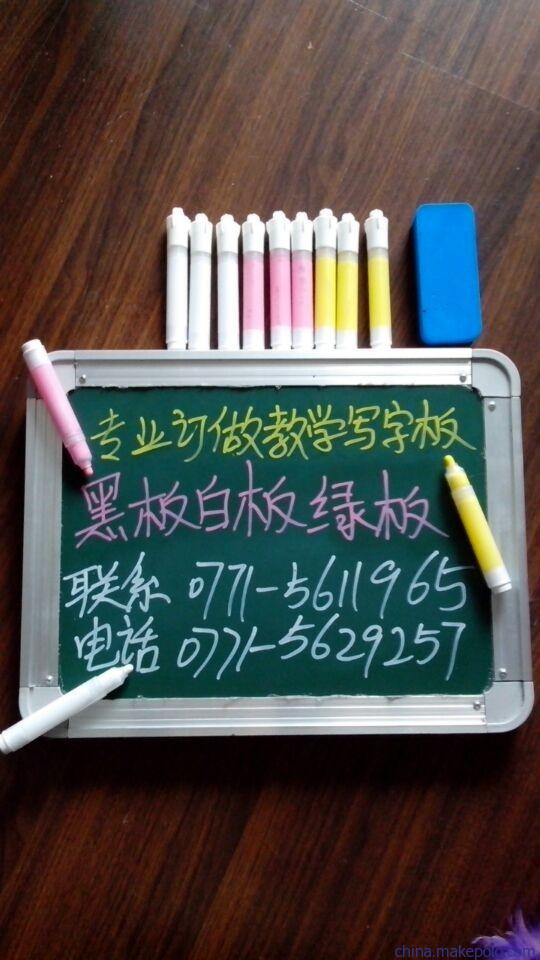 专业订做教学写字板
黑板白板绿板
联系 0771-5611965
电话 0771-5629257
china.makepolo.com